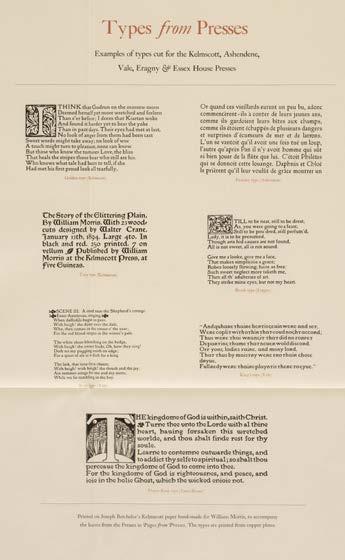 Types from Presses
Examples of types cut for the Kelmscott, Ashendene,
Vale, Eragny & Essex House Presses
I THINK that Gudrun on the morrow morn
Deemed herself yet more wretched and forlorn
Than e'er before; I deem that Kiartan woke
And found it harder yet to bear the yoke
Than in past days. Their eyes had met at last,
No look of anger from them had been cast
Sweet words might take away; no look of woe
A touch might turn to pleasure, none can know
But those who know the torment Love, the bliss
That heals the stripes those bear who still are his.
Who knows what tale had been to tell, if she
Had met his first proud look all tearfully.
Golden type (Kelmscott)
Or quand ces vieillards eurent un peu bu, adonc
commencèrent-ils à conter de leurs jeunes ans,
comme ils gardoient leurs bêtes aux champs,
comme ils étoient échappés de plusieurs dangers
et surprises d'écumeurs de mer et de larrons.
L'un se vantoit qu'il avoit une fois tué un loup,
l'autre qu'après Pan il n'y avoit homme qui sût
si bien jouer de la flûte que lui. C'étoit Philétas
qui se donnoit cette louange. Daphnis et Chloé
le prièrent qu'il leur voulût de grâce montrer un
The Story of the Glittering Plain.
By William Morris. With 23 wood-
cuts designed by Walter Crane.
January 13th, 1894. Large 4to. In
black and red. 250 printed. 7 on
vellum Published by William
Morris at the Kelmscott Press, at
Five Guineas.
Troy type (Kelmscott)
STILL, to be neat, still to be drest,
As, you were going to a feast;
Still to be pou'dred, still perfum'd,
Lady, it is to be presumed,
Though arts hid causes are not found,
All is not sweet, all is not sound.
Give me a looke, give me a face,
That makes simplicitie a grace;
Robes loosely flowing, haire as free:
Such sweet neglect more taketh me,
Then all th' adulteries of art.
They strike mine eyes, but not my heart.
Brook type (Eragny)
SCENE III. A road near the Shepherd's cottage
Enter Autolycus, singing.
When daffodils begin to peer,
With heigh! the doxy over the dale,
Why, then comes in the sweet o' the year;
For the red blood reigns in the winter's pale.
The white sheet bleaching on the hedge,
With heigh! the sweet birds, O, how they sing!
Doth set my pugging tooth on edge;
For a quart of ale is a dish for a king.
The lark, that tirra-lyra chants,
With heigh! with heigh! the thrush and the jay,
Are summer songs for me and my aunts,
While we lie tumbling in the hay.
THE kingdome of God is within, saith Christ.
Turne thee unto the Lorde with al thine
heart, having forsaken this wretched
worlde, and thou shalt finde rest for thy
soule.
Learne to contemne outwarde things, and
to addict thy self to spiritual; so shalt thou
perceaue the kingdome of God to come into thee.
For the kingdom of God is righteousnes, and peace, and
ioie in the holie Ghost, which the wicked enioie not.
Printed on Joseph Batchelor's Kelmscott paper handmade for William Morris, to accompany
the leaves from the Presses in 'Pages from Presses'. The types are printed from copper plates.